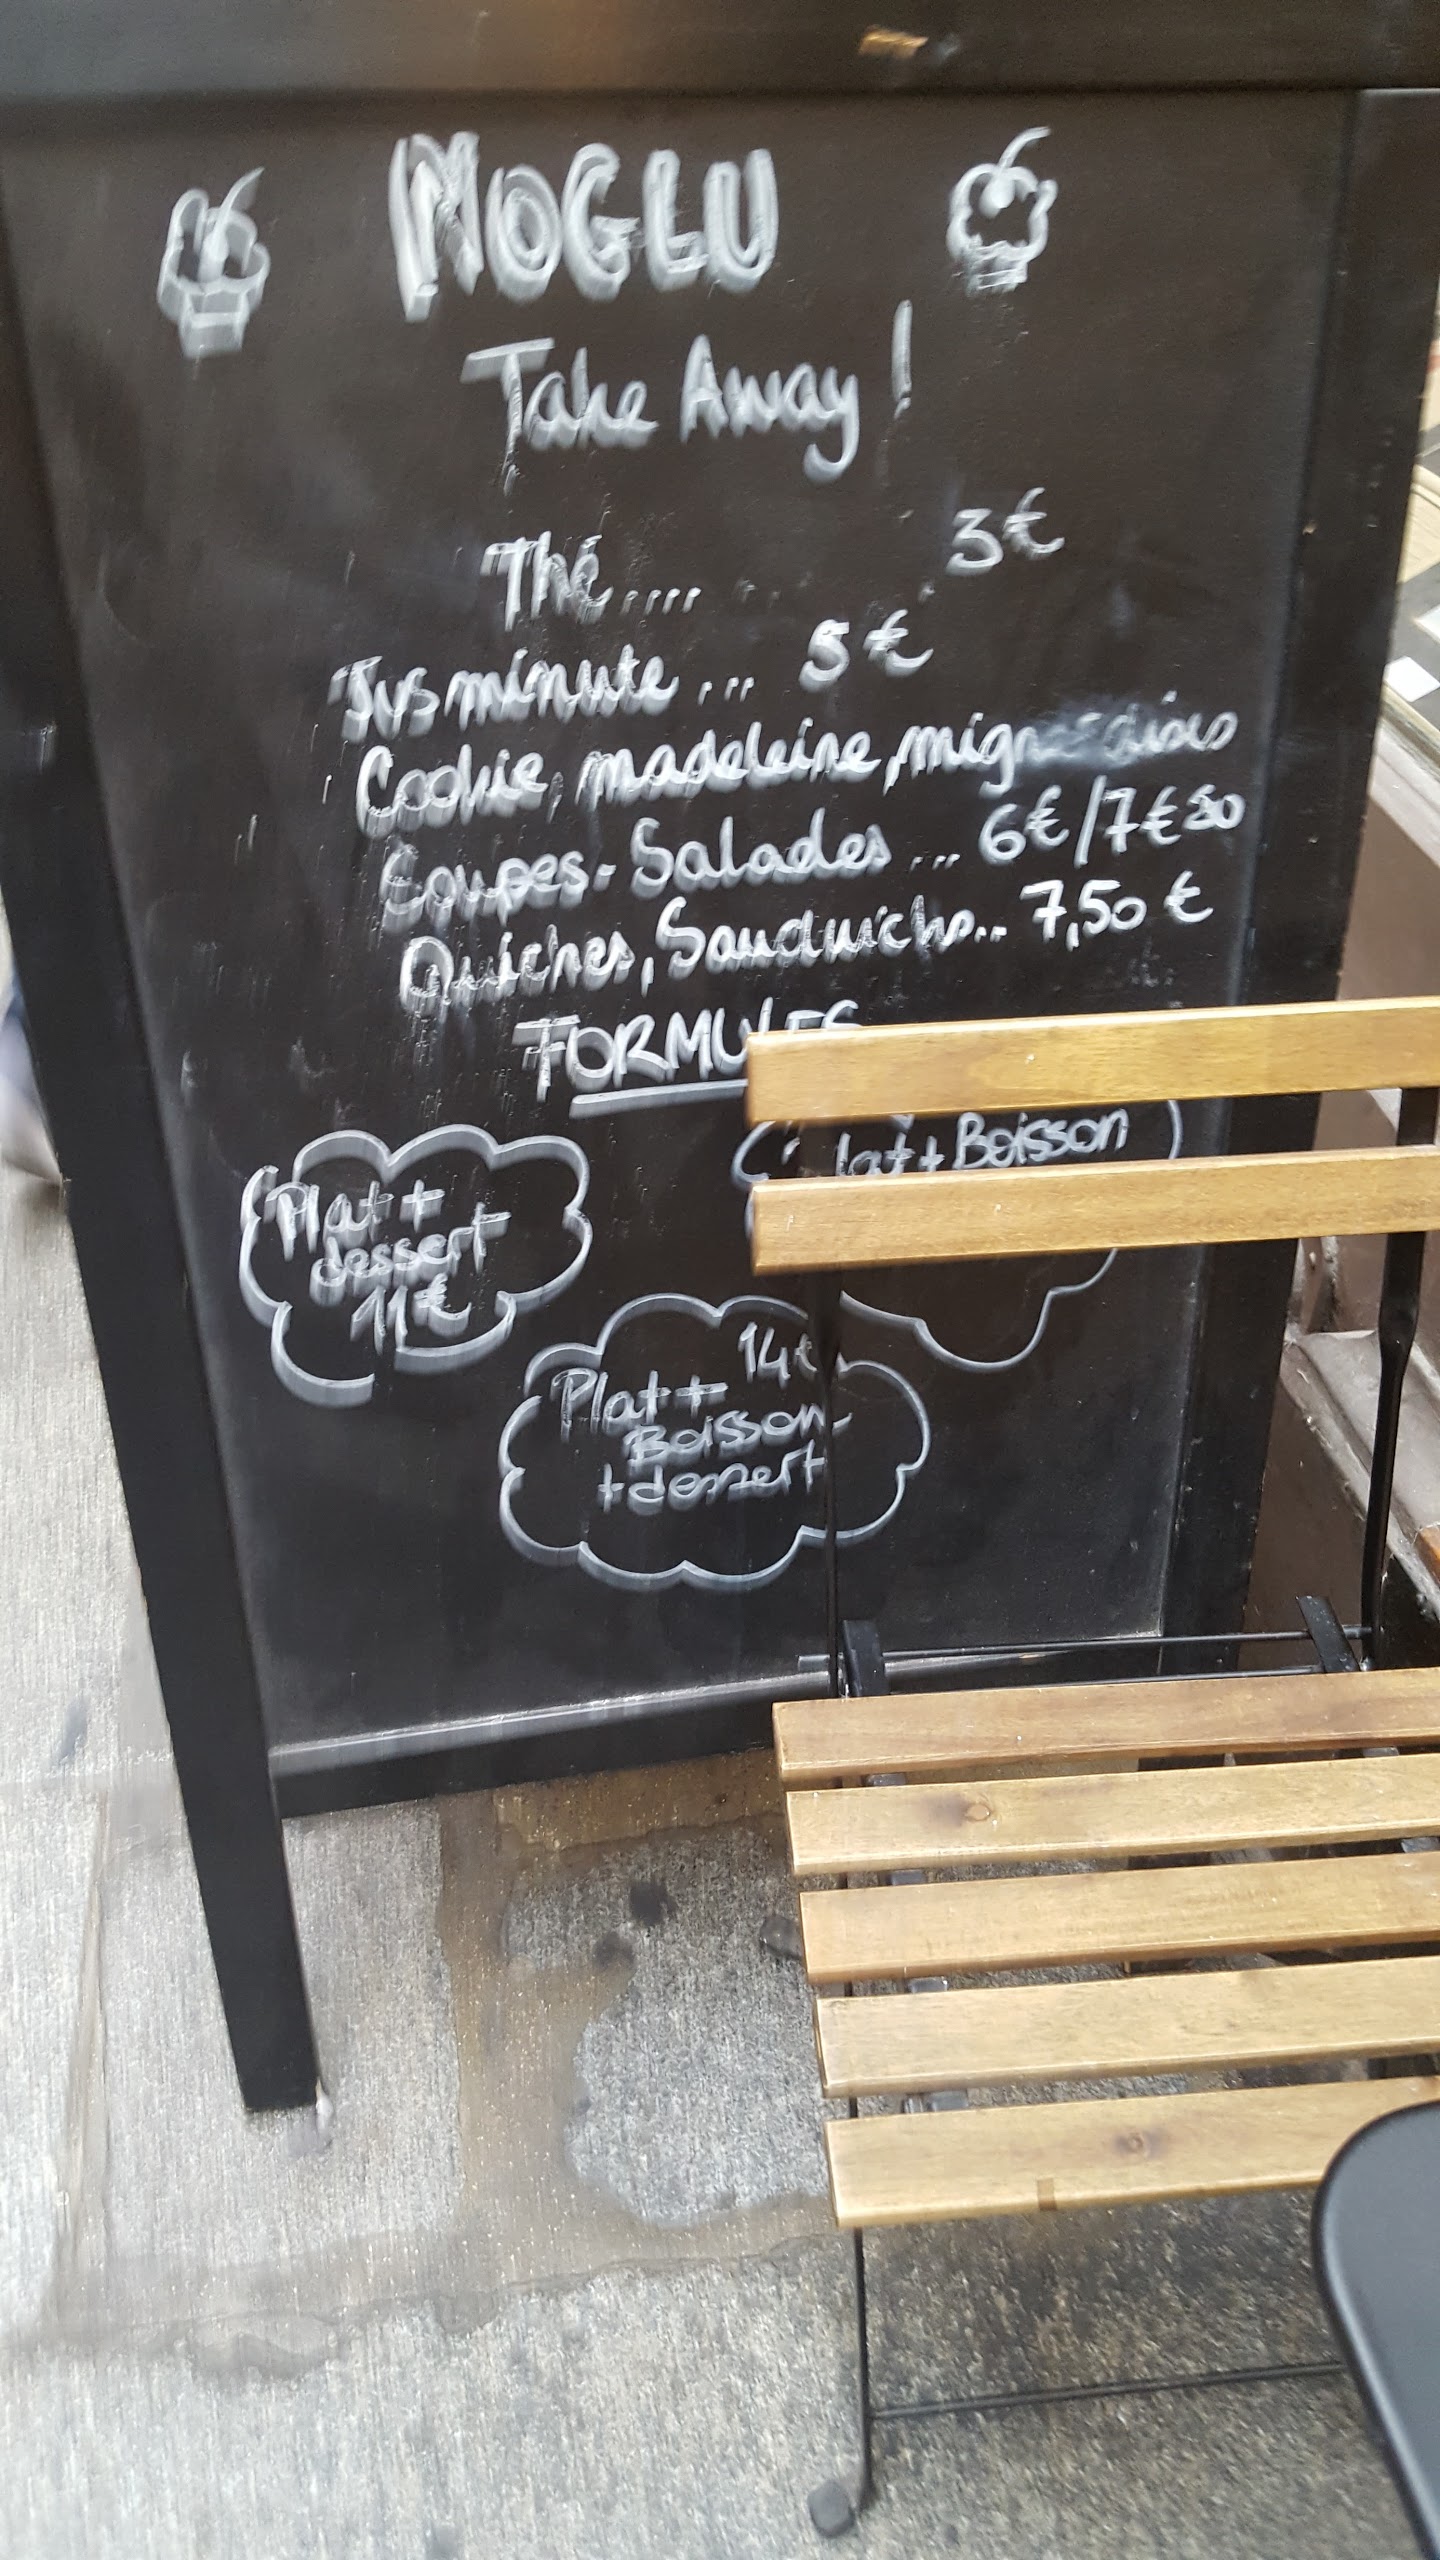 MOGLU
Take Away !
Thé.... 3€
Jus minute ... 5€
Cookie, madeleine,
Soupes - Salades ... 6€/7€50
Quiches, Sandwichs... 7,50€
FORMULES
Plat +
dessert
11€
+ Boisson
14€
Plat +
Boisson
+ dessert